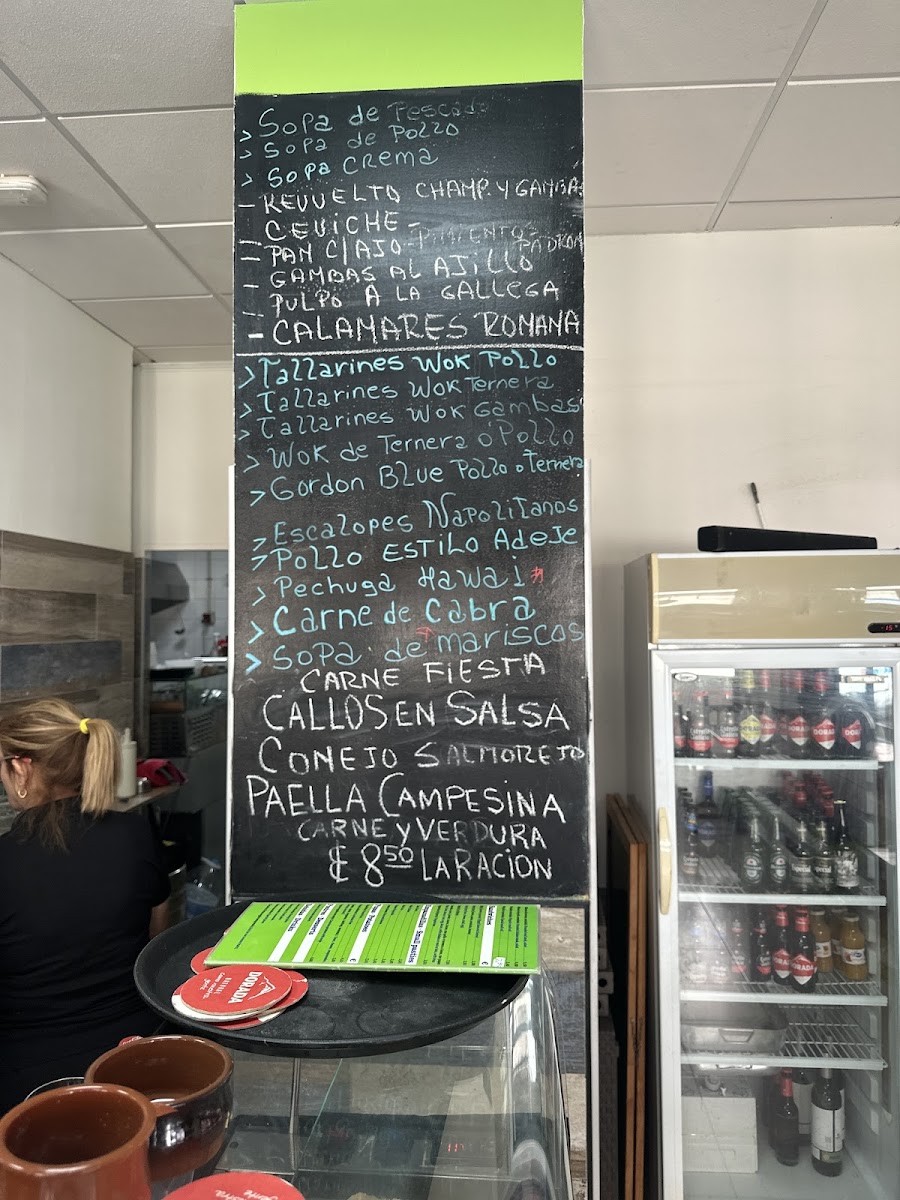 > Sopa de Pescado
> Sopa de Pollo
> Sopa Crema
- REVUELTO CHAMP. Y GAMBAS
CEVICHE -
- PAN C/AJO - PIMIENTOS PADRON
- GAMBAS AL AJILLO
- PULPO A LA GALLEGA
- CALAMARES ROMANA
> Tallarines Wok Pollo
> Tallarines Wok Ternera
> Tallarines Wok Gambas
> Wok de Ternera o Pollo
> Gordon Blue Pollo o Ternera
> Escalopes Napolitanos
> Pollo ESTILO Adeje
> Pechuga Hawai
> Carne de Cabra
> Sopa de mariscos
CARNE FIESTA
CALLOS EN SALSA
CONEJO SALMOREJO
PAELLA CAMPESINA
CARNE Y VERDURA
€ 8,50 LA RACION
DORADA
DORADA
DORADA
DORADA
DORADA